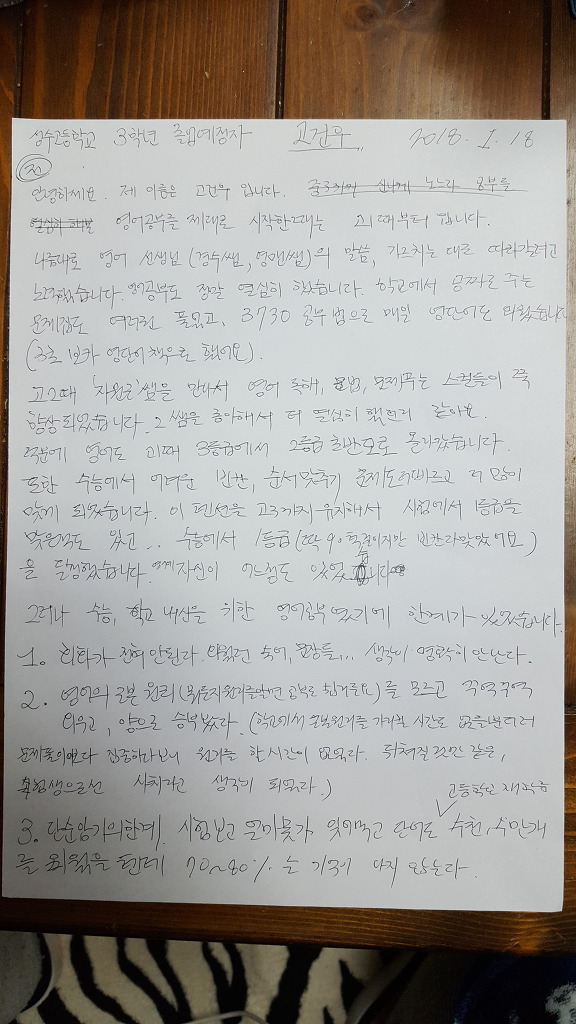 성수고등학교 3학년 졸업예정자 고건우 2018. 1. 18
전
안녕하세요. 제 이름은 고건우 입니다. 노느라 공부를
영어공부를 제대로 시작한때는 고1때부터 입니다.
나름대로 영어 선생님(경수쌤, 영맨쌤)의 말씀, 가르치는 대로 따라갈려고
노력했습니다. 영어공부도 정말 열심히 했습니다. 학교에서 공짜로 주는
문제집도 여러권 풀었고, 3730 공부법으로 매일 영단어도 외웠습니다
(3초 보카 영단어책으로 했어요).
고2때 쌤을 만나서 영어 독해, 문법, 문제푸는 스킬들이 쭉
향상되었습니다. 그 쌤을 좋아해서 더 열심히 했던거 같아요.
덕분에 영어도 고1때 3등급에서 2등급 초반으로 올라갔습니다.
또한 수능에서 어려운 빈칸, 순서맞추기 문제도 더 빠르고 더 많이
맞게 되었습니다. 이 텐션을 고3까지 유지해서 시험에서 1등급을
맞은적도 있고... 수능에서 1등급(딱 90점이지만 빈칸 다맞았어요)
을 달성했습니다. 자신이 어느정도 있었습니다
그러나 수능, 학교 내신을 위한 영어공부였기에 한계가 있었습니다.
1. 회화가 전혀 안된다. 외웠던 숙어, 문장들... 생각이 명확히 안난다.
2. 영어의 근본 원리(뭐든지 원리를 알면 공부도 쉽거든요)를 모르고 꾸역꾸역
외우고, 양으로 승부봤다. (학교에서 근본원리를 가르칠 시간도 없을뿐더러
문제풀이에만 집중하다보니 원리를 할 시간이 없었다. 뒤쳐질것만 같은,
수험생으로선 사치라고 생각이 되었다.)
고등학교 재학중
3. 단순암기의한계. 시험보고 얼마못가 잊어먹고 단어도 수천, 수만개
를 외웠을 텐데 70~80%는 기억이 나지 않는다.